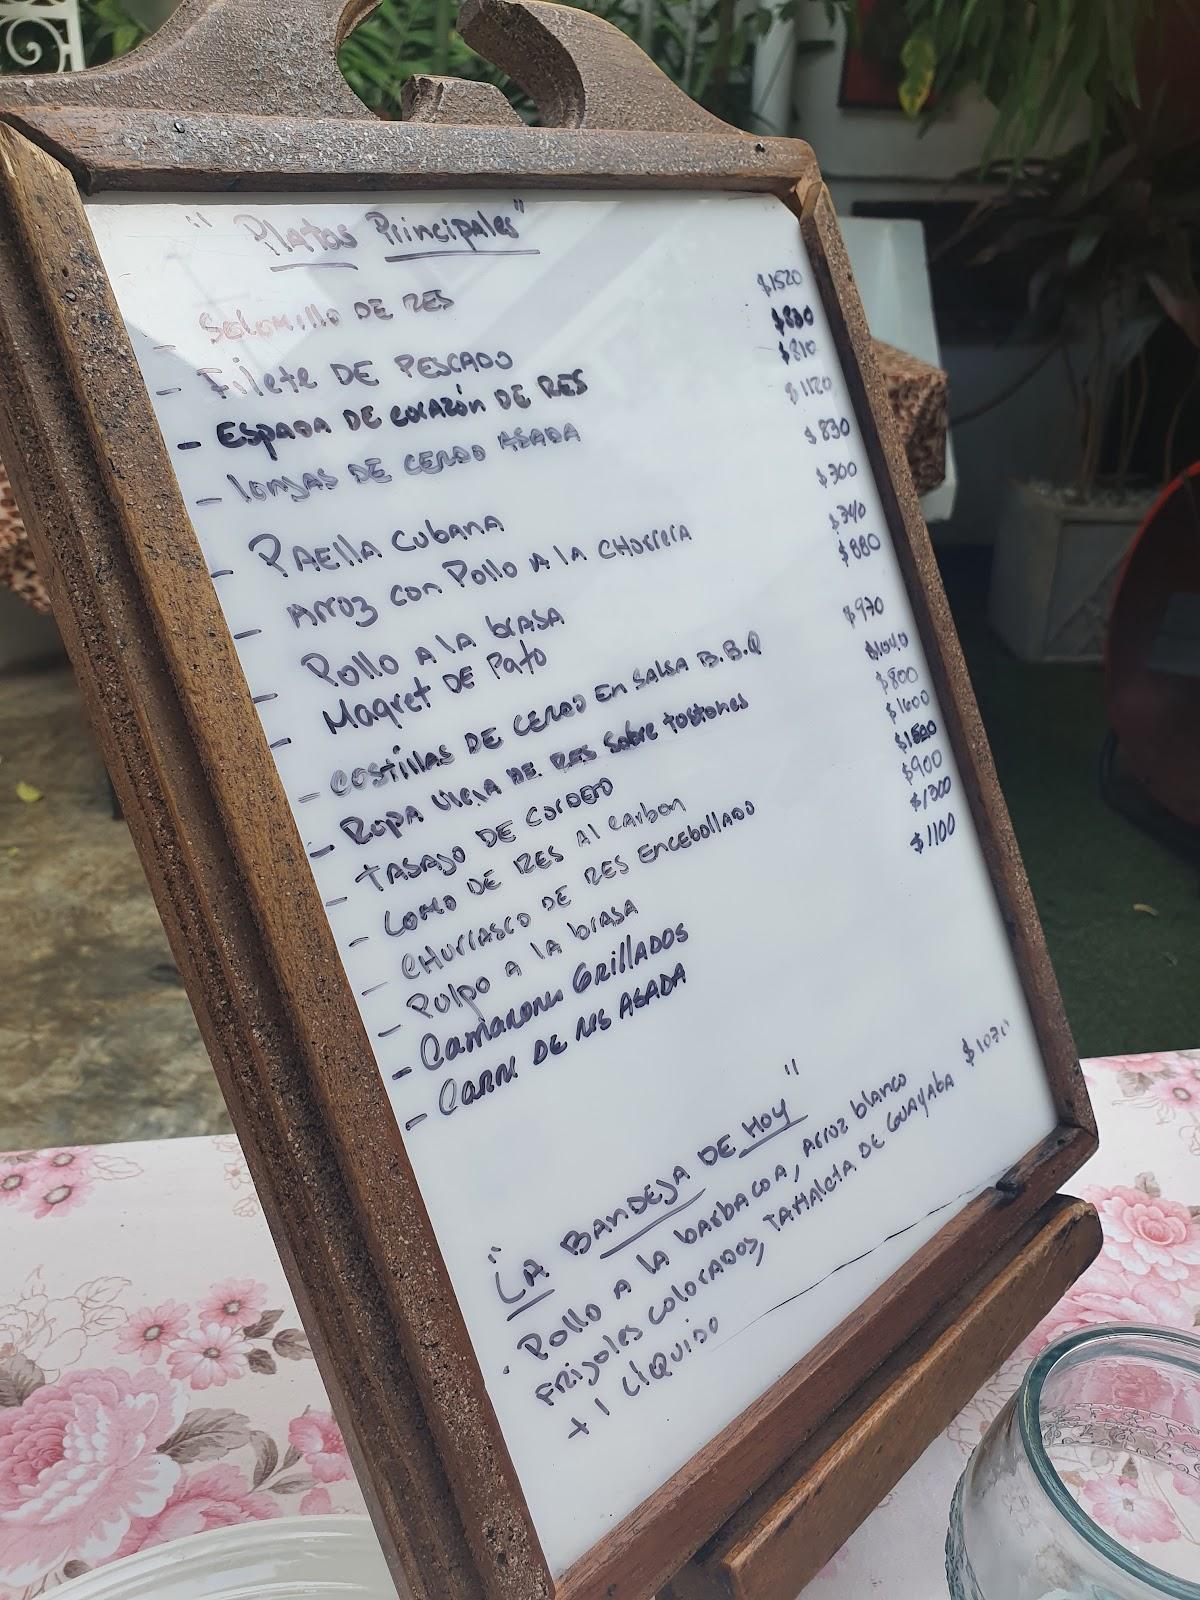 "Platos Principales"
- Solomillo DE RES $1520
- Filete DE PESCADO $830
- ESPADA DE CORAZÓN DE RES $810
- lonjas DE CERDO ASADA $1120
- PAElla Cubana $830
- Arroz con Pollo A lA CHorrera $300
- Pollo A lA brASA $740
- Magret DE Pato $880
- COStillAS DE CERDO En SAlSA B.B.Q $970
- Ropa VieJA DE RES Sobre tostones $1040
- TASAJO DE CorDERO $800
- LOMO DE RES Al Carbon $1600
- CHurrASCO DE RES EncEbollADO
- Pulpo A lA brASA $900
- CamAronEs GrillADOS $1300
- CArnE DE RES ASADA $1100
"LA BANDEJA DE HOY"
. Pollo A lA bArbAcoA, Arroz blAnco $1070
FRIJoles coloRADOS, TARTALETA DE GUAYAbA
+ 1 LÍQUIDO